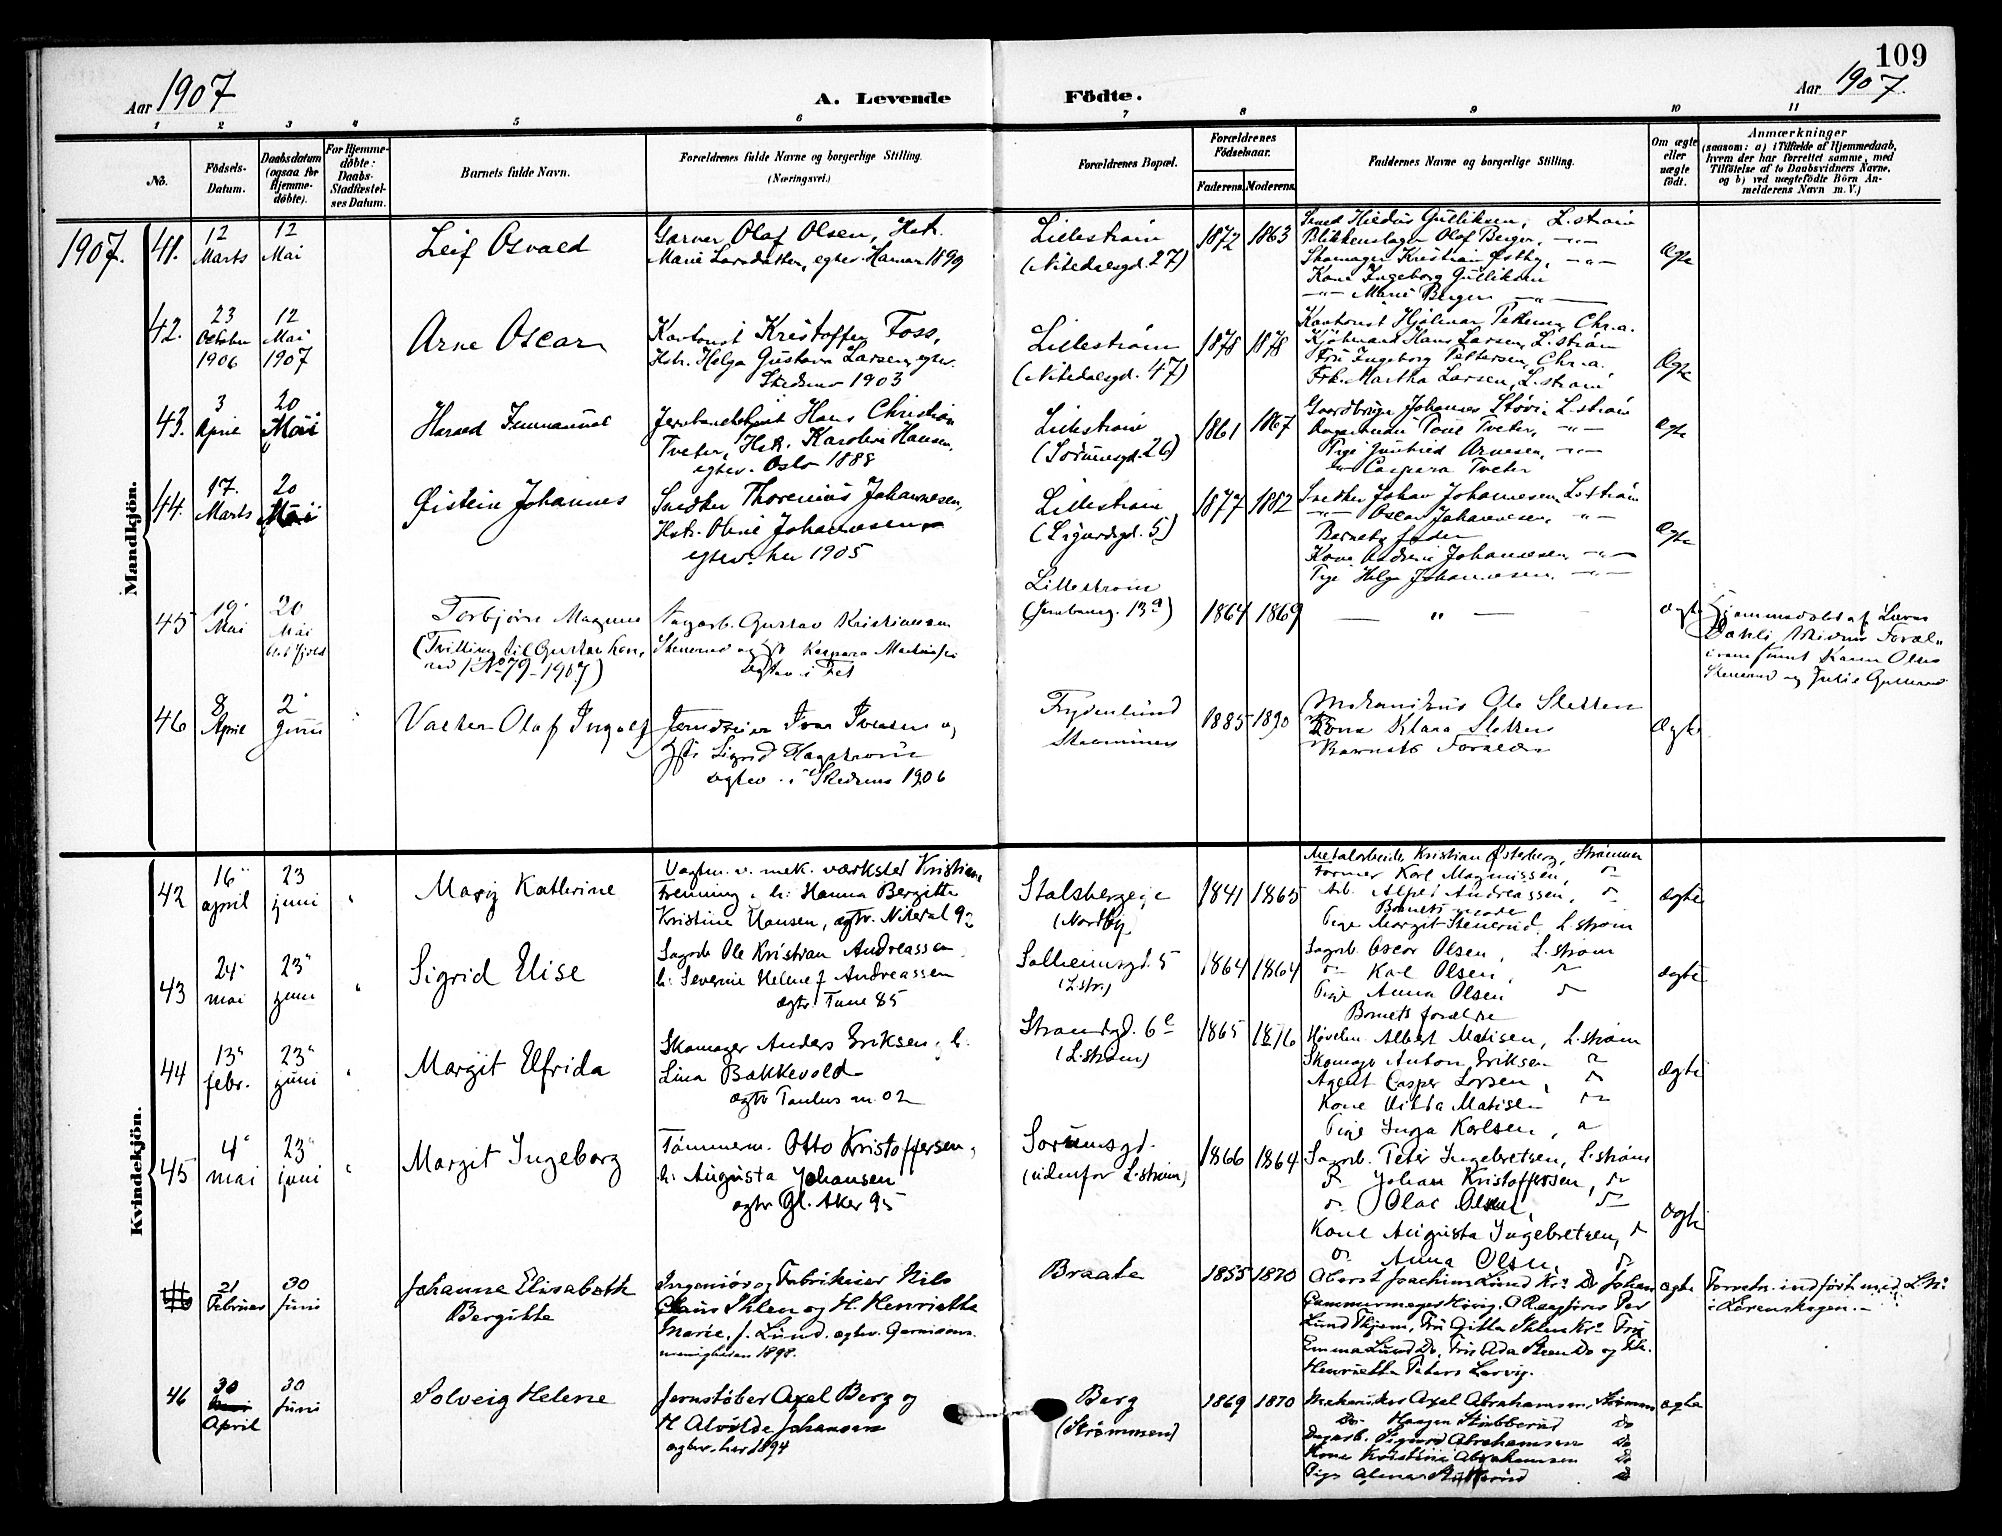 109
Aar 1907
A. Levende Födte.
Aar 1907.
1 2 3 4 5 6 7 8 9 10 11
No.
Födsels-Datum.
Daabsdatum (ogsaa for Hjemme-döbte).
For Hjemme-döbte: Daabs-Stadfæstel-ses Datum.
Barnets fulde Navn.
Forældrenes fulde Navne og borgerlige Stilling.
(Næringsvei.)
Forældrenes Bopæl.
Forældrenes Födselsaar.
Faderens. Moderens.
Faddernes Navne og borgerlige Stilling.
Om ægte eller uægte födt.
Anmærkninger
(saasom: a) i Tilfælde af Hjemmedaab,
hvem der har forrettet samme, med
Tilföielse af to Daabsvidners Navne,
og b) ved uægtefödte Börn An-
melderens Navn m. V.)
Mandkjön.
1907. 41. 12 Marts 12 Mai
Leif Osvald
Garver Olaf Olsen, Hstr.
Marie Larsdatter, egtev. Hamar 1899
Lillestrøm
(Nitedalsgd. 27)
1872 1863
Gulliksen, L.strøm
Blikkenslager Olaf Berger, -"-
Skomager Kristian Østby, -"-
Kone Ingeborg Gulliksen
-"- Marie Berger -"-
Ægte
42. 23 October 1906 12 Mai 1907
Arne Oscar
Kristoffer Foss,
Hstr. Helga Gustava Larsen, egtev.
Skedsmo 1903
Lillestrøm
(Nitedalsgd. 47)
1878 1878
Hjalmar Pettersen, Chr.a.
Hans Larsen, L.strøm
Fru Ingeborg Pettersen, Chr.a.
Frk. Martha Larsen, L.strøm
Ægte
43. 3 April 20 Mai
Harald Immanuel
Hans Christian
Tveter, Hstr. Karoline Hansen,
egtev. Oslo 1888
Lillestrøm
(Sørumsgd. 26)
1861 1867
Gaardbruger Johannes Støvi L.strøm
Tveter, -"-
Pige Arnesen, -"-
Caspara Tveter
Ægte
44. 17. Marts 20 Mai
Øistein Johannes
Snedker Thorenius Johannesen,
Hstr. Oline Johannesen
egtev. her 1905
Lillestrøm
(Sigurdsgd. 5)
1877 1882
Snedker Johan Johannesen, L.strøm
-"- Oscar Johannesen, -"-
Barnets fader
Kone Andrine Johannesen -"-
Pige Helga Johannesen. -"-
Ægte
45 19. Mai 20 Mai
Torbjørn Magnus
(Tvilling til Gustav
No 79 - 1907)
Sagarb. Gustav Kristiansen
Stenerud og Kaspara
Ægtev. i Fet
Lillestrøm
(Jernbaneg. 13a)
1864 1869
— " — —
Ægte
Hjemmedøbt af Lærer
Dahli
Karen Olsen
Stenerud og Julie
46 8 April 2' Juni
Valter Olaf Ingolf
Jerndreier Ivar Iversen og
Sigrid Hagstrøm
Ægtev. i Skedsmo 1906
Frydenlund
Strømmen
1885 1890
Mekanikus Ole Sletten
Kone Klara Sletten
Barnets Forældre
Ægte
Kvindekjön.
42 16" april 23 juni
Mary Kathrine
Vagtm. v. mek. værksted Kristian
Frenning, h: Hanna Bergitte
Kristine Hansen, ægtv. Niteral 92
Stalsbergeie
(Nordby)
1841 1865
Metalarbeider Kristian Østerberg, Strømmen
Former Karl Magnussen,
Arb. Alfred Andreassen,
Barnets moder
Pige Margit Stenerud, L.strøm
ægte
43 24" mai 23" juni
Sigrid Elise
Sagarb Ole Kristian Andreassen
h: Severine Helene f Andreassen
ægtv. Tune 85
Solheimsgd. 5
(L.str.)
1864 1864
Sagarb Oscar Olsen, L.strøm
Karl Olsen,
Pige Anna Olsen
Barnets forældre
ægte
44 13" febr. 23" juni
Margit Elfrida
Skomager Anders Eriksen, h.
Lina Bakkevold
ægtv Paulus m. 02
Strandgd. 6c
(L.strøm)
1865 1876
Høvelm Albert Matisen, L.strøm
Skomager Anton Eriksen
Agent Casper Larsen,
Kone Hilda Matisen
Pige Inga Karlsen,
ægte
45 4" mai 23" juni
Margit Ingeborg
Tømmerm. Otto Kristoffersen,
h: Augusta Johansen
ægtv Gl. Aker 95
Sørumsgd.
(udenfor L.strøm)
1866 1864
Sagarb. Peter Ingebretsen, L.strøm
Johan Kristoffersen,
Olaf Olsen,
Kone Augusta Ingebretsen,
Anna Olsen,
ægte
21 Februar 30 Juni
Johanna Elisabeth
Bergitte
Ingeniør og Fabrikeier Nils
Claus Ihlen og H. Henriette
Marie, f. Lund. ægtev. Garnisons
menigheden 1898.
Braate
1855 1870
Oberst Joachim Lund Kr.a Do Johan
Gammermeyer Høvig, Per
Lund Fru Gitta Ihlen Kr.a Fru
Emma Lund Do, Fru Ada Do og Frk.
Henriette Peters Larvig.
ægte
Forretn. indført med L. No
i Lørenskogen.
46 30 April 30 Juni
Solveig Helene
Jernstøber Axel Berg og
H Alvilde Johansen
ægtev. her 1894
Berg
(Strømmen)
1869 1870
Mekaniker Axel Abrahamsen, Strømmen
Do Haagen Stubberud Do
Dagarb. Sigurd Abrahamsen Do
Kone Kristine Abrahamsen Do
Pige Alma Stubberud Do
ægte